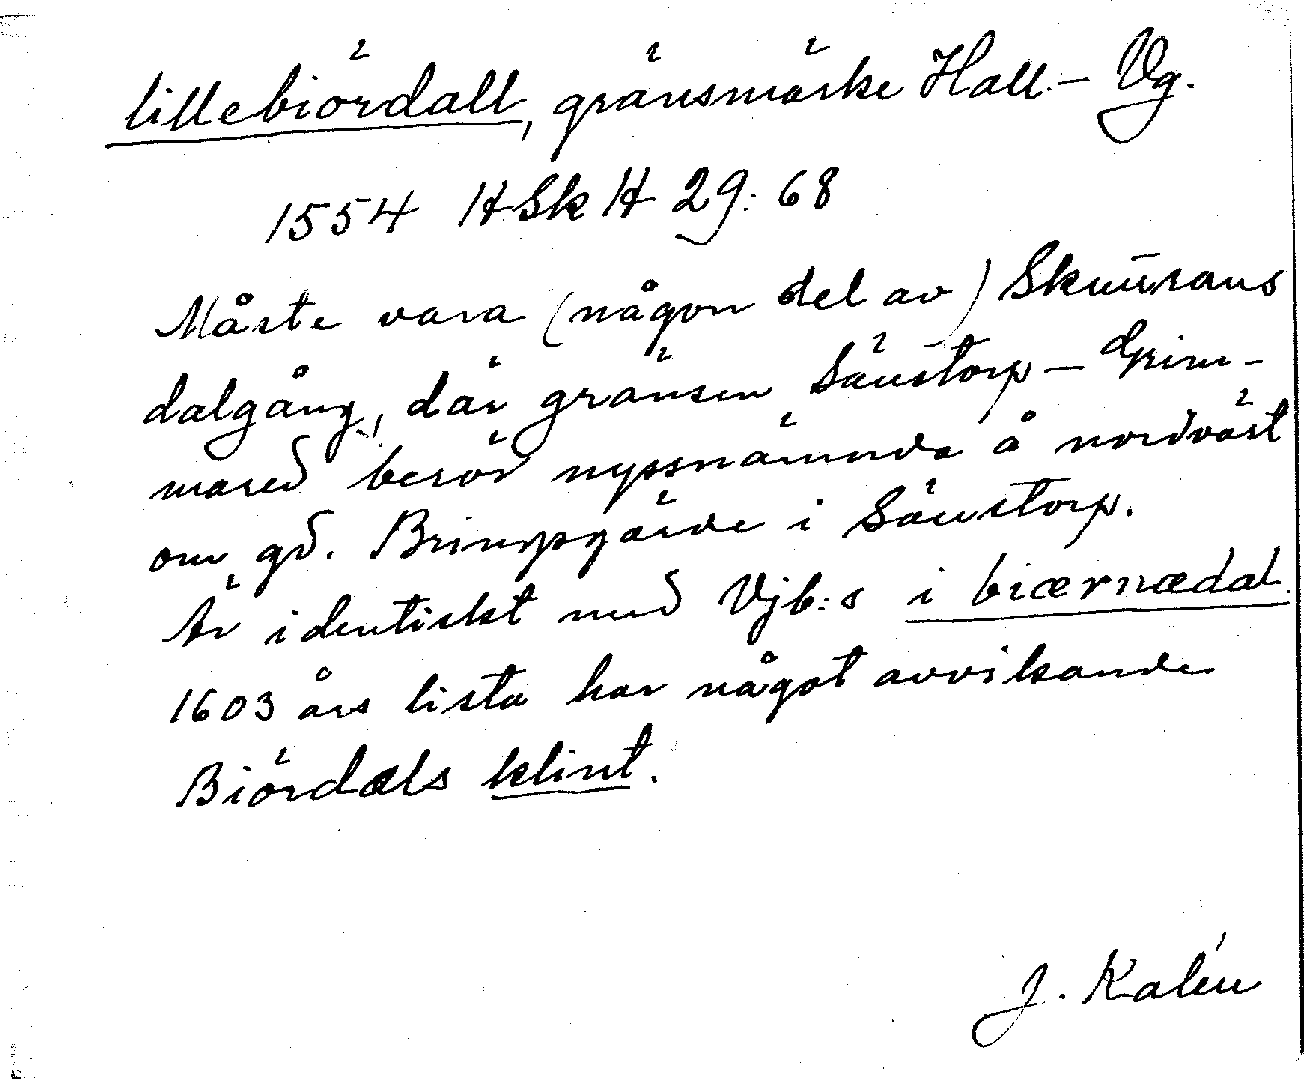 lillebiördall, gränsmärke Hall. – Vg.
1554 HSkH 29: 68
Måste vara (någon del av) Skuurans
dalgång, där gränsen Säustorp – Grim-
mared berör nyssnämnda å nordväst
om gd. Brimpgärde i Säustorp.
Är identiskt med Vjb:s i biærnædal.
1603 års lista har något avvikande
Biördæls klint.
J. Kalén